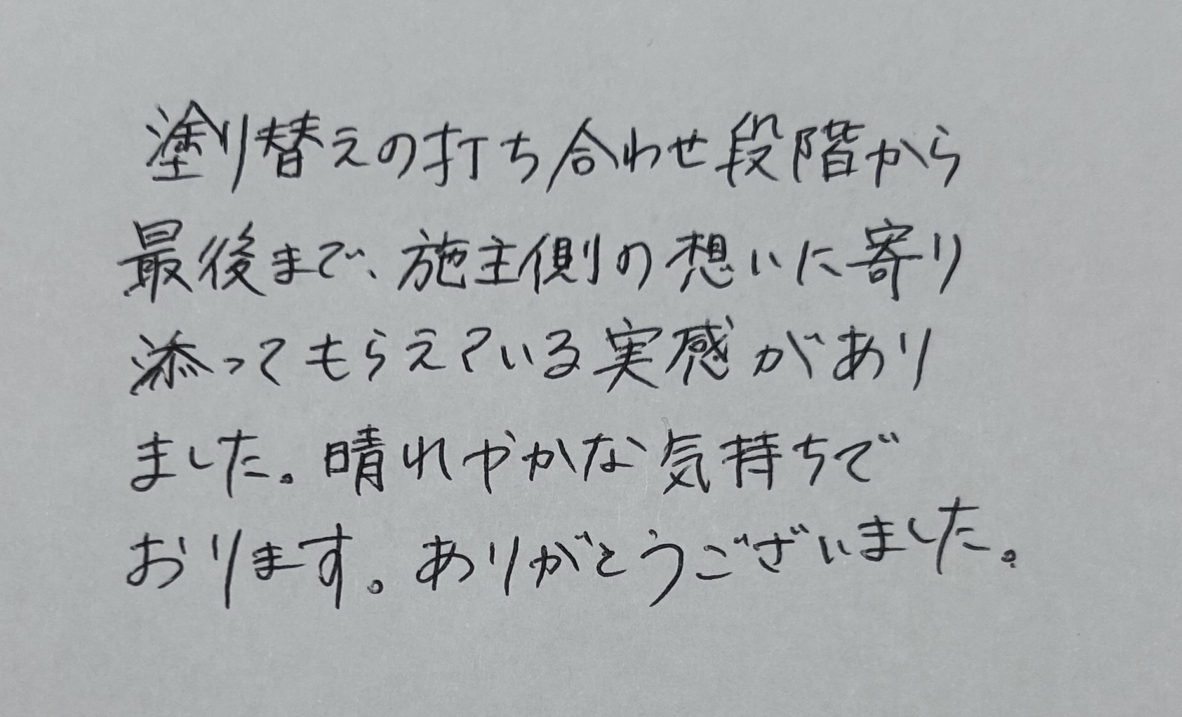 塗り替えの打ち合わせ段階から
最後まで、施主側の想いに寄り
添ってもらえている実感があり
ました。晴れやかな気持ちで
おります。ありがとうございました。